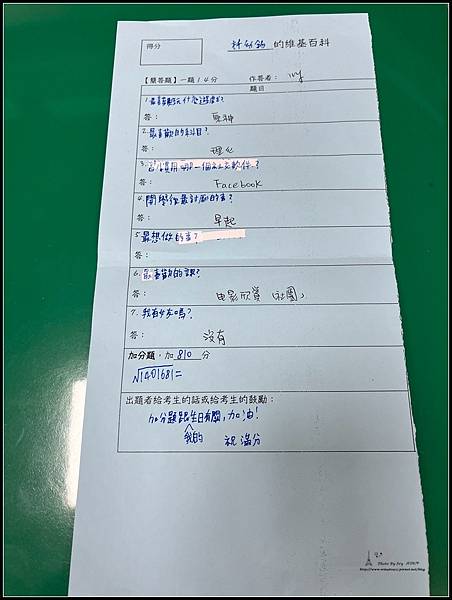 得分
的維基百科
【簡答題】一題14分 作答者：
題目
1.最喜歡玩什麼遊戲?
答： 原神
2.最喜歡的科目?
答： 理化
3. 用哪一個社交軟件?
答： Facebook
4.開學後最討厭的事?
答： 早起
5.最想做的事?
答：
6.最喜歡的課?
答： 电影欣賞（社團）
7.我有女友嗎?
答： 沒有
加分題，加 810 分
√1401681=
出題者給考生的話或給考生的鼓勵：
加分題跟我的生日有關，加油！
祝滿分
Photo By Ivy